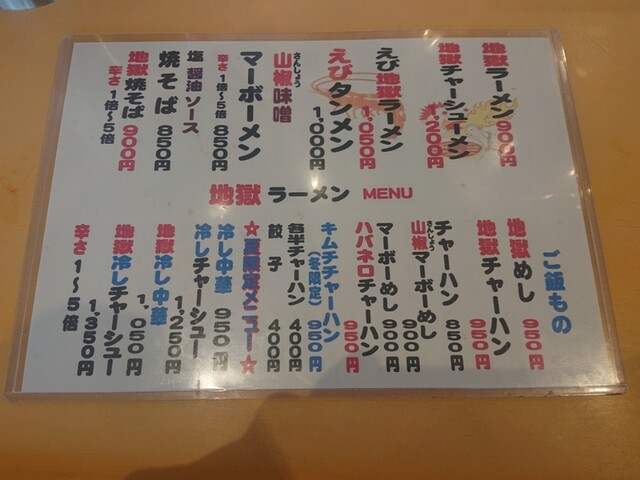 地獄ラーメン 900円
地獄チャーシューメン 1,200円
えび地獄ラーメン 1,050円
えびタンメン 1,000円
さんしょう
山椒味噌
マーボーメン 850円
辛さ1倍～5倍
塩 醤油 ソース
焼そば 850円
地獄焼そば 900円
辛さ1倍～5倍
地獄 ラーメン MENU
ご飯もの
地獄めし 950円
地獄チャーハン 950円
チャーハン 850円
さんしょう
山椒マーボーめし 900円
マーボーめし 900円
ハバネロチャーハン 950円
キムチチャーハン 950円
(冬限定)
各半チャーハン 400円
餃子 400円
☆夏限定メニュー☆
冷し中華 950円
冷しチャーシュー 1,250円
地獄冷し中華 1,050円
地獄冷しチャーシュー 1,350円
辛さ1～5倍